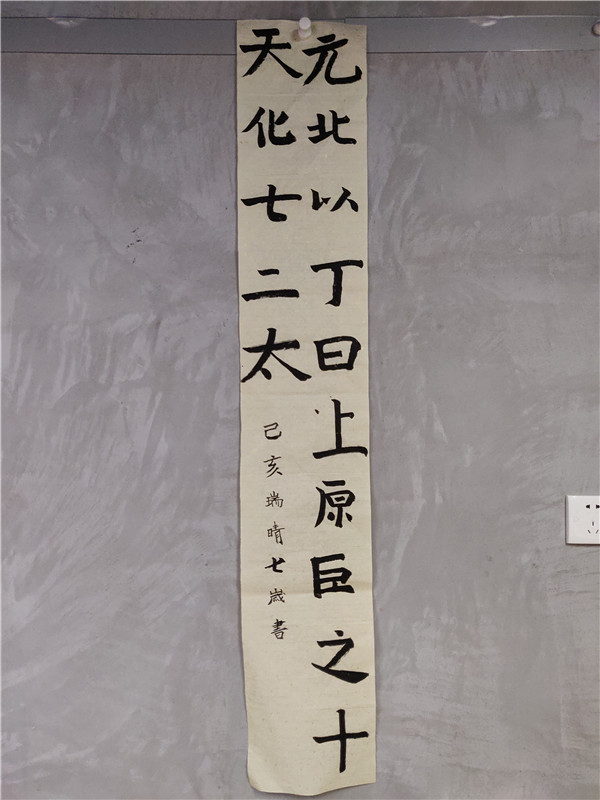 元北以丁曰上原臣之十
天化七二太
己亥瑞晴七歲書